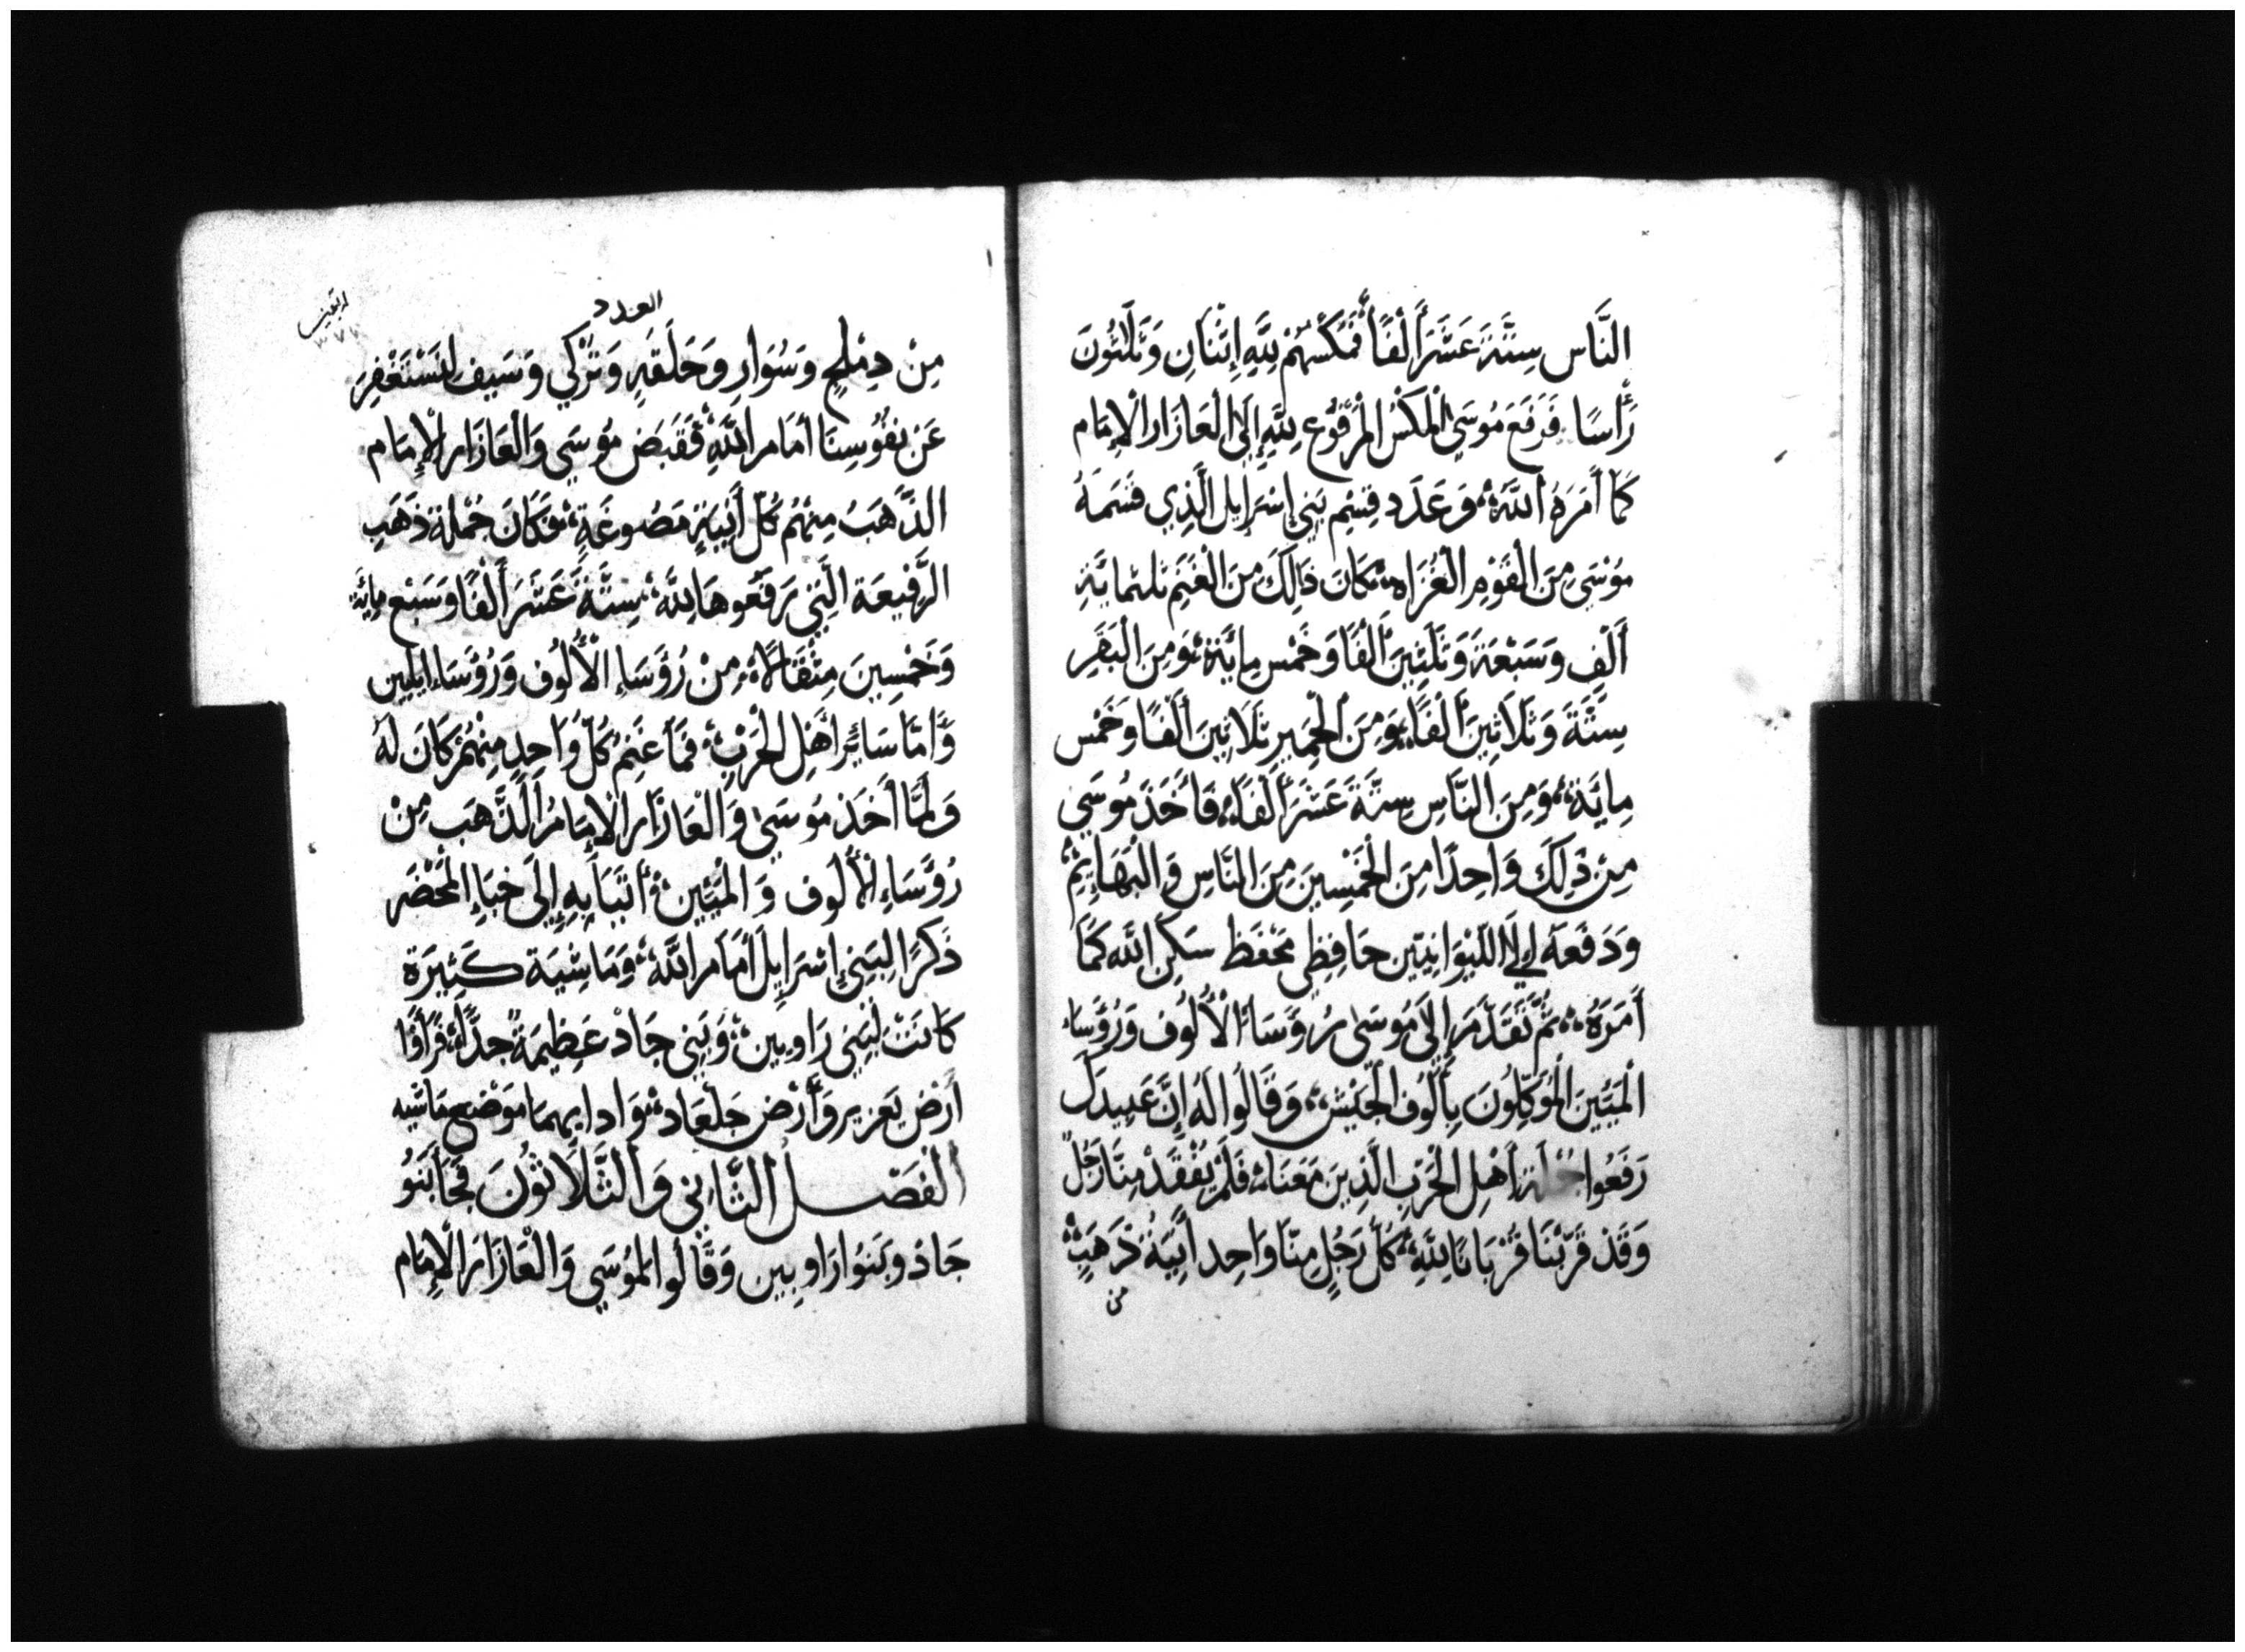 النَّاس سِتَّةَ عَشَرَ أَلْفًا فَمَكْسُهُمْ لِلَّهِ إِثْنَانِ وَثَلَثُونَ
رَأْسًا فَرَفَعَ مُوسَي الْمَكْسَ الْمَرْفُوع لِلَّهِ إِلَى الْعَازَار الْإِمَام
كَمَا أَمَرَهُ اللَّهُ وَعَدَد قِسْمِ بَنِي إِسْرَايِل الَّذِي قَسَمَهُ
مُوسَي مِنَ الْقَوْمِ الْغُزَاه كَانَ ذَالِكَ مِنَ الْغَنَمِ ثلثمايَةِ
أَلْفٍ وَسَبْعَةَ وَثَلَثِينَ أَلْفًا وَخَمْس مِايَةَ وَمِنَ الْبَقَرِ
سِتَّةَ وَثَلَاثِينَ أَلْفًا وَمِنَ الْحَمِيرِ ثَلَاثِينَ أَلْفًا وَخَمْس
مِايَة وَمِنَ النَّاسِ سِتَّةَ عَشَرَ أَلْفًا فَأَخَذَ مُوسَي
مِنْ ذَلِكَ وَاحِدًا مِنَ الْخَمْسِينَ مِنَ النَّاسِ وَالْبَهَايِمِ
وَدَفَعَهَ إِلَي اللِّيْوَانِيّين حَافِظِي مَحْفَظ سَكَنِ اللَّه كَمَا
أَمَرَهُ ثُمَّ تَقَدَّمَ إِلَى مُوسَى رُؤَسَاءُ الْأُلُوف وَرُؤَسَاء
الْمِئِينَ الْمُوَكَّلُونَ بِأُلُوف الْجَيْش وَقَالُوا لَهُ إِنَّ عَبِيدَكَ
رَفَعُوا جُمْلَةَ أَهْلِ الْحَرْبِ الَّذِينَ مَعَنَا فَلَمْ يُفْقَدْ مِنَّا رَجُلٌ
وَقَدْ قَرَّبْنَا قُرْبَانًا لِلَّهِ كُلُّ رَجُلٍ مِنَّا وَاحِد أَنِيَةُ ذَهَبٍ
من
العدد
مِنْ دِمْلِجٍ وَسُوَارٍ وَحَلَقَهٍ وَتُرْكِي وَسَيف لِنَسْتَغْفِرَ
عَنْ نفُوُسِنَا أَمَام اللَّهِ فَقَبَض مُوسَي وَالْعَازَار الْإِمَام
الذَّهَبُ مِنْهُمُ كُلّ أَنِيَةٍ مَصُوغَةٍ فَكَانَ جُمْلَة ذَهَبِ
الرَّفِيعَة الَّتِي رَفَعُوهَا لِلَّه سِتَّةَ عَشَرَ أَلْفًا وَسَبْع مِايَّة
وَخَمْسِينَ مِثْقَالاً مِنْ رُؤَسَاءِ الْأُلُوف وَرُؤَسَاء الْمِيِين
وَأَمَّا سَايُر أَهْلِ الْحَرْبِ فَمَا غَنِمَ كُلّ وَاحِدٍ مِنْهُمْ كَانَ لَهُ
وَلَمَّا أَخَذ مُوسَي وَالْعَازَار الْإِمَامُ الذَّهَب مِنْ
رُؤَسَاءِ الْأُلُوف وَ الْمِيِين أَتَيَا بِهِ إِلَى خِبَاءِ الْمَحْضَر
ذَكرًا لِبَنِي إِسْرَايِلَ أَمَام اللَّه وَمَاشِيَة كَثِيرَة
كَانَتْ لِبَنِي رَاوِبِين وَبَنِي جَاد عَظِيمَةً جدًّا فَرَأَوْا
أَرْضَ يَعزِير وَأَرْضَ جَلْعَاد وَادايهما مَوْضِع مَاشيه
الْفَصْل الثَّانِي وَالثَّلَاثُونَ فَجَا بَنُو
جَاد وبَنُو رَاوِبِين وَقَالُوا لِمُوسَي وَالْعَازَار الْإِمَام